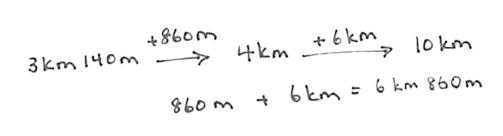 3km 140m +860m → 4km +6km → 10km
860m + 6km = 6km 860m